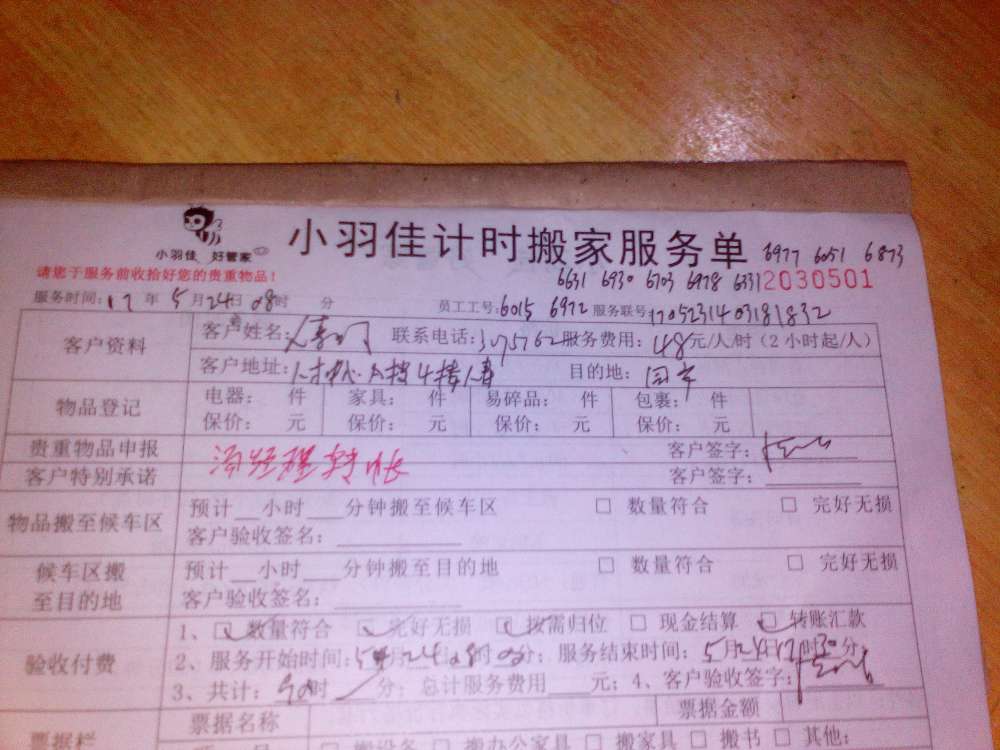 小羽佳 好管家
小羽佳计时搬家服务单 6977 6051 6873
请您于服务前收拾好您的贵重物品！ 6631 6930 6703 6978 6331 2030501
服务时间：17年5月24日08时 分 员工工号：6015 6972 服务联号：1705231403181832
客户资料 客户姓名： 联系电话： 服务费用：48元/人/时（2小时起/人）
客户地址： 目的地：
物品登记 电器： 件 家具： 件 易碎品： 件 包裹： 件
保价： 元 保价： 元 保价： 元 保价： 元
贵重物品申报 客户签字：
客户特别承诺 经理转帐 客户签字：
物品搬至候车区 预计 小时 分钟搬至候车区 □ 数量符合 □ 完好无损
客户验收签名：
候车区搬至目的地 预计 小时 分钟搬至目的地 □ 数量符合 □ 完好无损
客户验收签名：
验收付费 1、☑数量符合 ☑完好无损 ☑按需归位 □ 现金结算 ☑转账汇款
2、服务开始时间：5月24日8时00分；服务结束时间：5月24日17时30分；
3、共计： 时 分；总计服务费用 元；4、客户验收签字：
票据栏 票据名称 票据金额
□ 搬设备 □ 搬办公家具 □ 搬家具 □ 搬书 □ 其他：